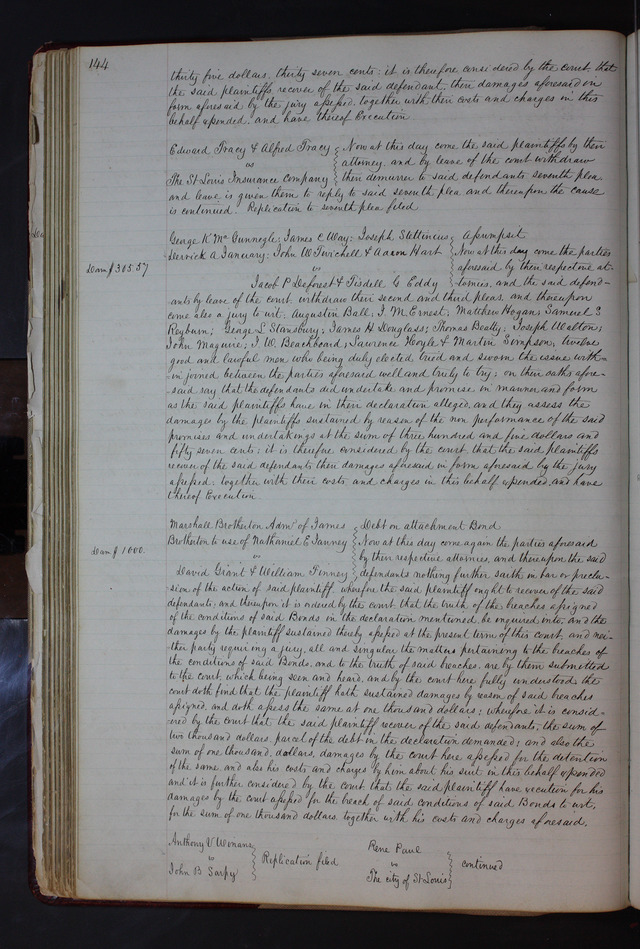 144
thirty five dollars, thirty seven cents; it is therefore considered by the court, that
the said plaintiffs recover of the said defendant, their damages aforesaid in
form aforesaid by the jury assessed, together with their costs and charges in this
behalf expended, and have thereof Execution
Edward Tracy & Alfred Tracy
vs
The St Louis Insurance Company
Now at this day come the said plaintiffs by their
attorney, and by leave of the court withdraw
their demurrer to said defendants seventh plea
and leave is given them to reply to said seventh plea and thereupon the cause
is continued. Replication to seventh plea filed
George K McGunnegle, James C Way, Joseph Stettinius
Derrick A January, John W Twichell & Aaron Hart
vs
Jacob P Deforest & Tisdell G Eddy
Dam $305.57
Assumpsit
Now at this day come the parties
aforesaid by their respective at-
-tornies, and the said defend-
-ants by leave of the court, withdraw their second and third pleas, and thereupon
come also a jury to wit: Augustin Ball; J. M. Ernest; Matthew Hogan; Samuel S
Reyburn; George L Stansbury; James H Douglass; Thomas Beatty; Joseph Walton;
John Maguire; J W. Beachboard; Lawrence Hoyle & Martin Simpson; twelve
good and lawful men who being duly elected, tried and sworn the issue with-
-in joined between the parties aforesaid well and truly to try; on their oaths afore-
-said say that the defendants did undertake and promise in manner and form
as the said plaintiffs have in their declaration alleged, and they assess the
damages by the plaintiffs sustained by reason of the non performance of the said
promises and undertakings at the sum of three hundred and five dollars and
fifty seven cents; it is therefore considered by the court, that the said plaintiffs
recover of the said defendants their damages aforesaid in form aforesaid by the jury
assessed; together with their costs and charges in this behalf expended, and have
thereof Execution
Marshall Brotherton Admr of James
Brotherton to use of Nathaniel E Janney
vs
David Grant & William Finney
Dam $1000.
Debt on attachment Bond
Now at this day come again the parties aforesaid
by their respective attornies, and thereupon the said
defendants nothing further saith in bar or preclu-
-sion of the action of said plaintiff, wherefore the said plaintiff ought to recover of the said
defendants; and thereupon it is ordered by the court, that the truth of the breaches assigned
of the conditions of said Bonds in the declaration mentioned, be inquired into, and the
damages by the plaintiff sustained thereby assessed at the present term of this court, and nei-
-ther party requiring a jury, all and singular the matters pertaining to the breaches of
the conditions of said Bonds, and to the truth of said breaches, are by them submitted
to the court, which being seen and heard, and by the court here fully understood the
court doth find that the plaintiff hath sustained damages by reason of said breaches
assigned, and doth assess the same at one thousand dollars; wherefore it is consid-
-ered by the court that the said plaintiff recover of the said defendants, the sum of
two thousand dollars, parcel of the debt in the declaration demanded; and also the
sum of one thousand dollars, damages by the court here assessed for the detention
of the same, and also his costs and charges by him about his suit in this behalf expended
and it is further considered by the court that the said plaintiff have execution for his
damages by the court assessed for the breach of said conditions of said Bonds to wit;
for the sum of one thousand dollars, together with his costs and charges aforesaid.
Anthony V
vs
John B Sarpy
Replication filed
Rene Paul
vs
The city of St Louis
continued